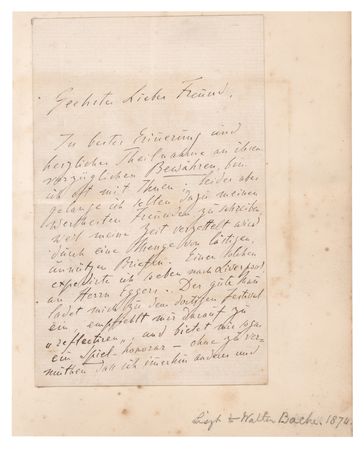 Geehrter Lieber Freund,
In bester Erinerung und
herzlicher Theilnahme an ihrem
vorzüglichen Bewähren, bin
ich oft mit Ihnen. Leider aber
gelange ich selten dazu meinen
werthesten Freunden zu schreiben,
weil meine Zeit verzettelt wird
durch eine Menge von lästigen,
unnützen Briefen. Einen solchen
expedirte ich soeben nach Liverpool
an Herrn Eggers. Der gute
ladet mich zu dem dortigen Festival
ein, empfiehlt mir darauf zu
„reflectiren„, und bietet mir sogar
ein Spiel-honorar – ohne zu ver-
muthen dass ich imerhin anderes und
Liszt to Walter Bache. 1874.